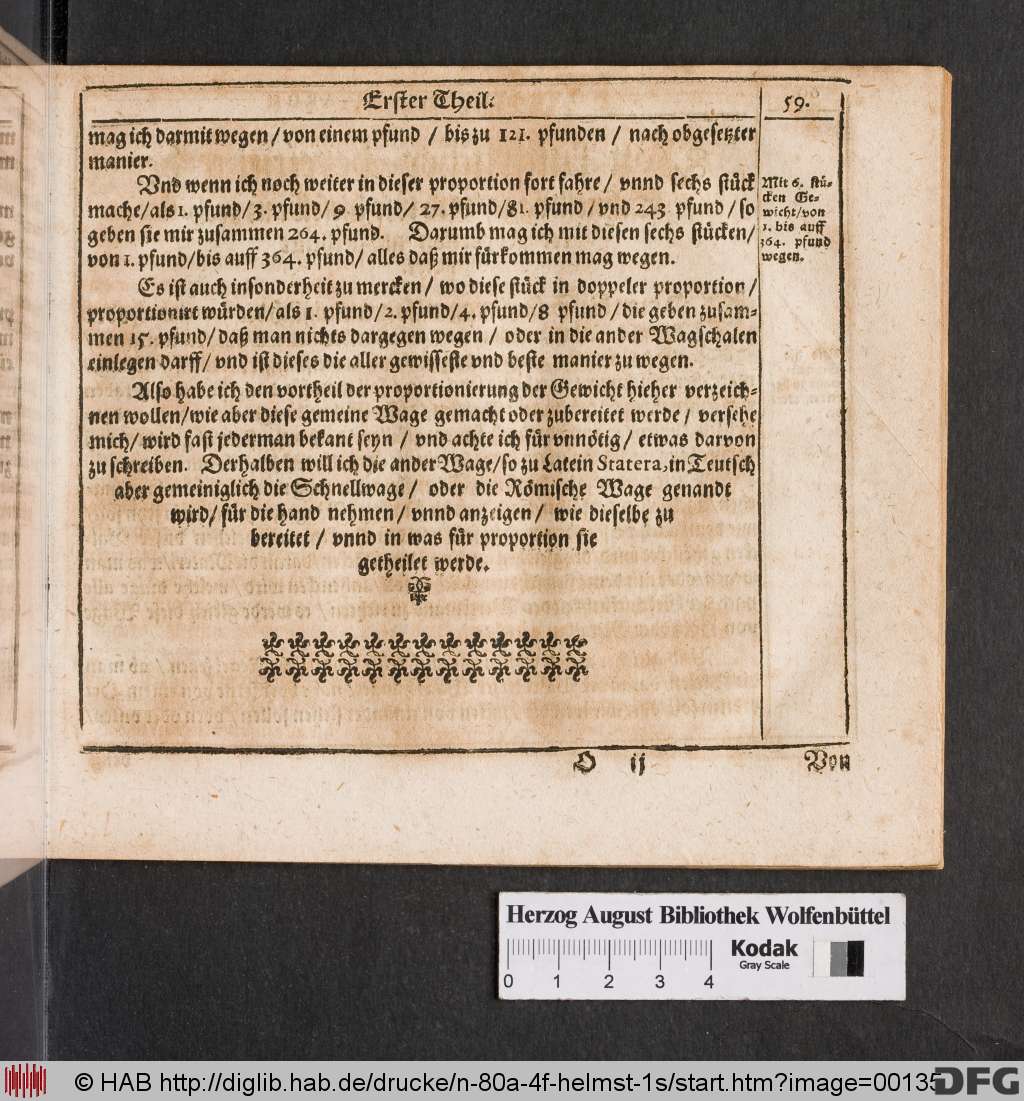 Erster Theil.
59.
mag ich darmit wegen / von einem pfund / bis zu 121. pfunden / nach obgesetzter
manier.
Vnd wenn ich noch weiter in dieser proportion fort fahre / vnnd sechs stück
mache/als 1. pfund/3. pfund/9 pfund/ 27. pfund/81. pfund / vnd 243 pfund / so
geben sie mir zusammen 264. pfund. Darumb mag ich mit diesen sechs stücken/
von 1. pfund/bis auff 364. pfund/ alles daß mir fürkommen mag wegen.
Mit 6. stü-
cken Ge-
wicht/von
1. bis auff
364. pfund
wegen.
Es ist auch insonderheit zu mercken / wo diese stück in doppeler proportion /
proportionirt würden/als 1. pfund/2. pfund/4. pfund/8 pfund / die geben zusam-
men 15. pfund/ daß man nichts dargegen wegen / oder in die ander Wagschalen
einlegen darff/ vnd ist dieses die aller gewisseste vnd beste manier zu wegen.
Also habe ich den vortheil der proportionierung der Gewicht hieher verzeich-
nen wollen/wie aber diese gemeine Wage gemacht oder zubereitet werde / versehe
mich/ wird fast jederman bekant seyn / vnd achte ich für vnnötig / etwas darvon
zu schreiben. Derhalben will ich die ander Wage/so zu Latein Statera, in Teutsch
aber gemeiniglich die Schnellwage / oder die Römische Wage genandt
wird/ für die hand nehmen / vnnd anzeigen / wie dieselbe zu
bereitet / vnnd in was für proportion sie
getheilet werde.
O ij
Von
Herzog August Bibliothek Wolfenbüttel
Kodak
Gray Scale
0 1 2 3 4
© HAB http://diglib.hab.de/drucke/n-80a-4f-helmst-1s/start.htm?image=00135
DFG